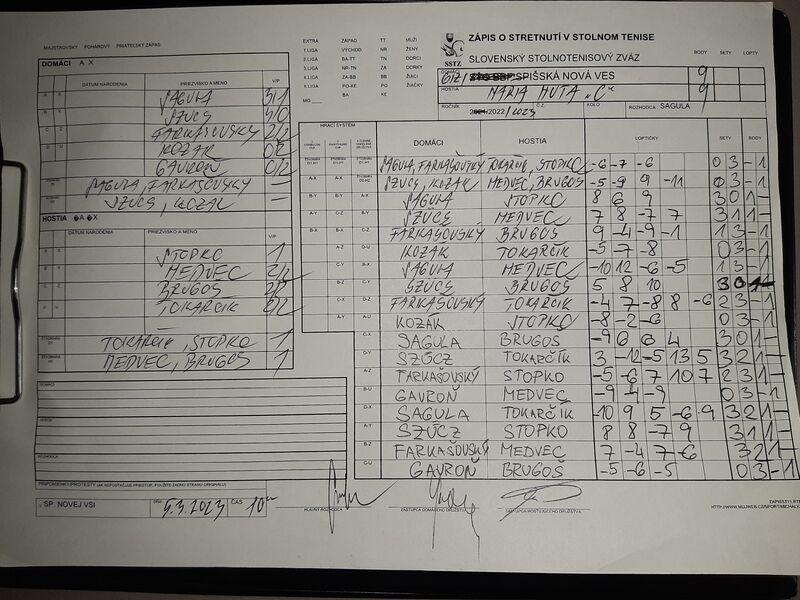 MAJSTROVSKÝ POHÁROVÝ PRIATEĽSKÝ ZÁPAS
EXTRA ZÁPAD TT MUŽI
1.LIGA VÝCHOD NR ŽENY
2.LIGA BA-TT TN DORCI
3.LIGA NR-TN ZA DORKY
4.LIGA ZA-BB BB ŽIACI
5.LIGA PO-KE PO ŽIAČKY
MO BA KE
SSTZ
ZÁPIS O STRETNUTÍ V STOLNOM TENISE
SLOVENSKÝ STOLNOTENISOVÝ ZVÄZ
BODY SETY LOPTY
SPIŠSKÁ NOVÁ VES 9
HOSTIA MÁRIA HUTA "C" 9
ROČNÍK 2022/2023 Č.Z. KOLO ROZHODCA: SAGULA
DOMÁCI A X
DÁTUM NARODENIA PRIEZVISKO A MENO V/P
SAGULA 3/1
SZUCS
FARKAŠOVSKÝ 2/2
KOZAK
GAVROŇ 0/2
SAGULA, FARKAŠOVSKÝ —
SZUCS, KOZAK —
HOSTIA �A �X
DÁTUM NARODENIA PRIEZVISKO A MENO V/P
STOPKO
MEDVEC 2/2
BRUGOS
TOKARČIK
TOKARČIK, STOPKO 1
MEDVEC, BRUGOS 1
HRACÍ SYSTÉM DOMÁCI HOSTIA LOPTIČKY SETY BODY
SAGULA, FARKAŠOVSKÝ TOKARČIK, STOPKO -6 -7 -6 0 3 - 1
SZUCS, KOZAK MEDVEC, BRUGOS -5 -9 9 -11 0 3 - 1
A-X A-X B-X SAGULA STOPKO 8 6 9 3 0 1 -
B-Y B-Y A-X SZUCS MEDVEC 7 8 -7 7 3 1 1 -
FARKAŠOVSKÝ BRUGOS 9 -4 -9 -1 1 3 - 1
KOZAK TOKARČIK -5 -7 -8 0 3 - 1
SAGULA MEDVEC -10 12 -6 -5 1 3 - 1
SZUCS BRUGOS 5 8 10 3 0 1 -
FARKAŠOVSKÝ TOKARČIK -4 7 -8 8 -6 2 3 - 1
KOZAK STOPKO -8 -2 -6 0 3 - 1
C-X SAGULA BRUGOS -9 6 6 4 3 0 1 -
D-Y SZÚCZ TOKARČÍK 3 -12 -5 13 5 3 2 1 -
A-Z FARKAŠOVSKÝ STOPKO -5 -6 7 10 7 2 3 1
B-U GAVROŇ MEDVEC -9 -4 -9 0 3 - 1
D-X SAGULA TOKARČÍK -10 9 5 -6 9 3 2 1 -
A-Y SZÚCZ STOPKO 8 8 -7 9 3 1 1 -
B-Z FARKAŠOVSKÝ MEDVEC 7 -4 7 -6 3 2 1
C-U GAVROŇ BRUGOŠ -5 -6 -5 0 3 - 1
DOMÁCI
HOSTIA
ROZHODCA
PRIPOMIENKY/PROTESTY (AK NEPOSTAČUJE PRIESTOR, POUŽITE ZADNÚ STRANU ORIGINÁLU)
V SP. NOVEJ VSI DŇA 5.3.2023 ČAS 10
HLAVNÝ ROZHODCA ZÁSTUPCA DOMÁCEHO DRUŽSTVA ZÁSTUPCA HOSŤUJÚCEHO DRUŽSTVA